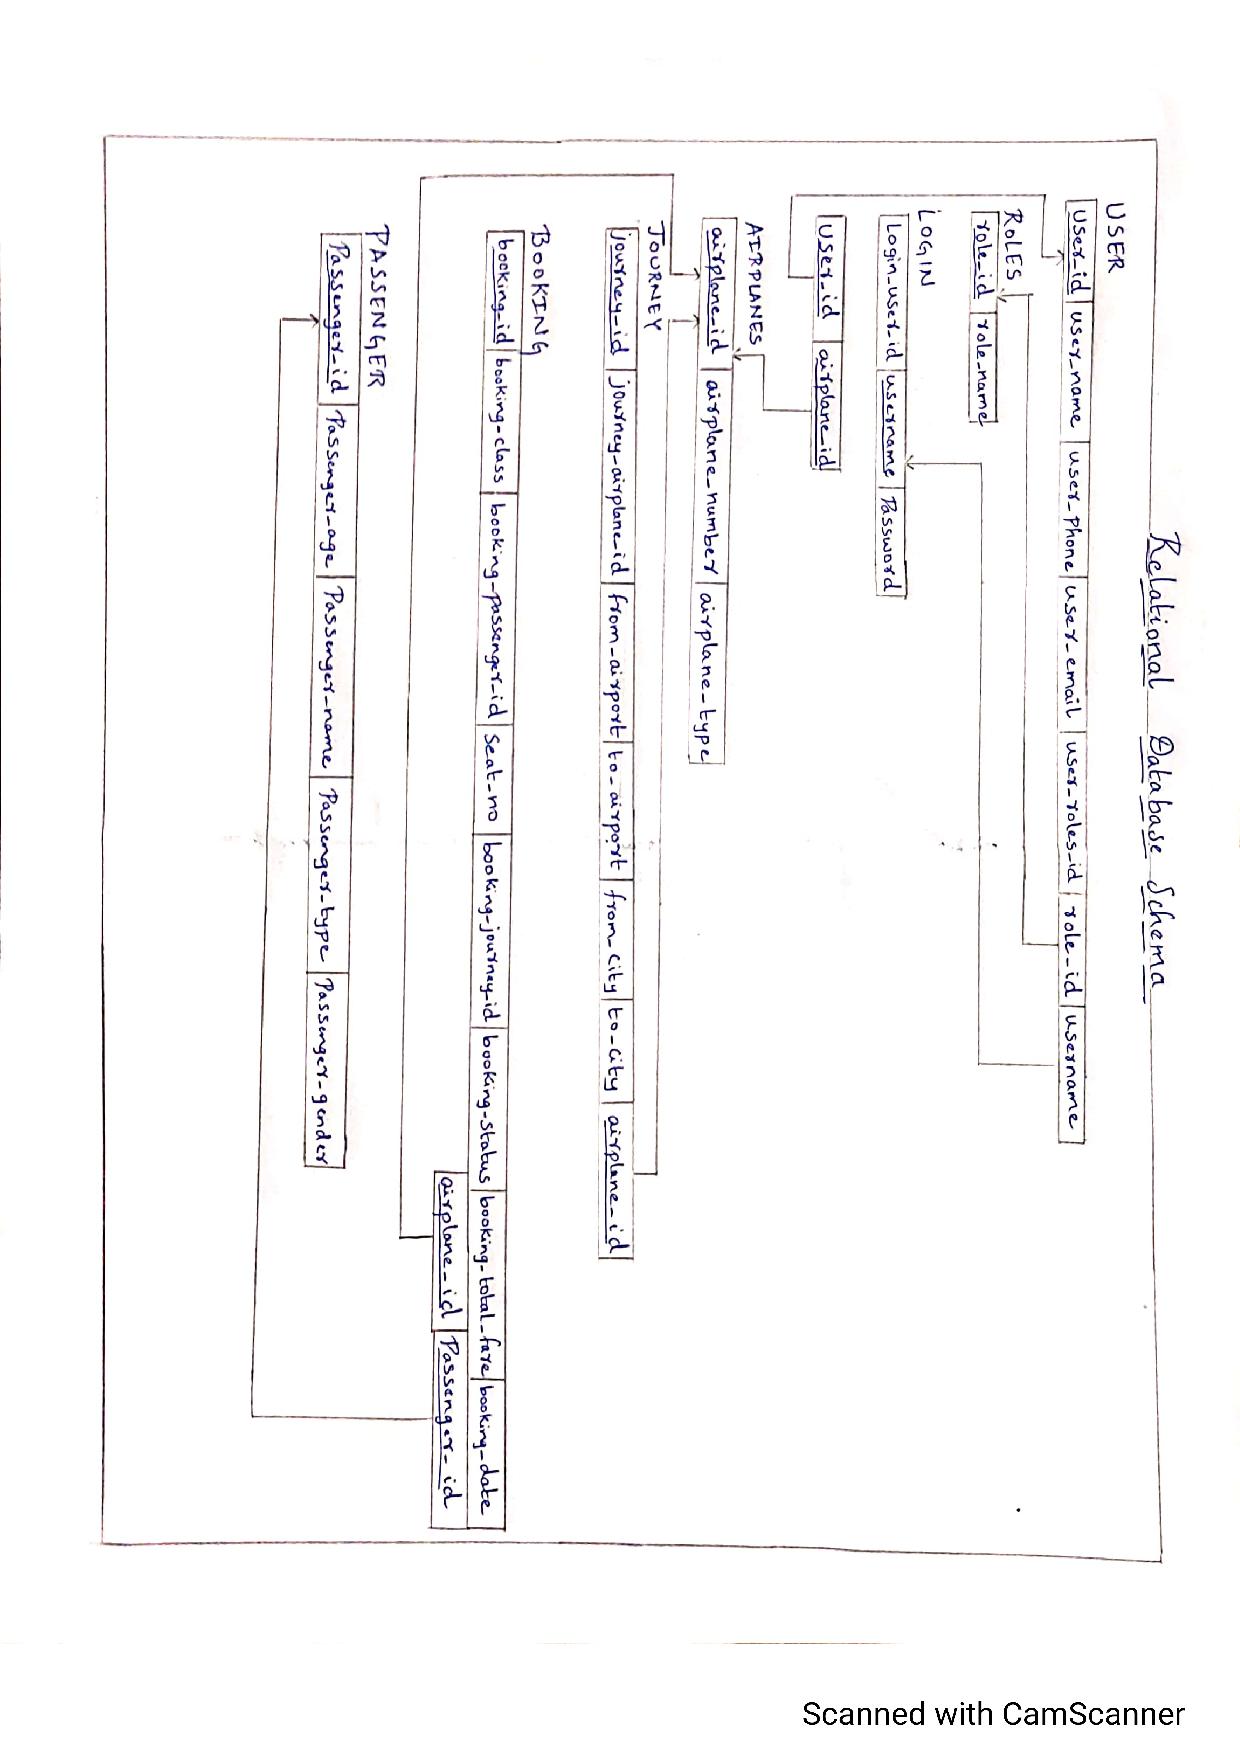 Relational Database Schema
USER
User_id user_name user_phone user_email user_roles_id role_id username
ROLES
role_id role_name
LOGIN
Login_user_id username Password
User_id airplane_id
AIRPLANES
airplane_id airplane_number airplane_type
JOURNEY
journey_id journey_airplane_id from_airport to_airport from_city to_city airplane_id
BOOKING
booking_id booking_class booking_passenger_id Seat_no booking_journey_id booking_status booking_total_fare booking_date
airplane_id Passenger_id
PASSENGER
Passenger_id Passenger_age Passenger_name Passenger_type Passenger_gender
Scanned with CamScanner